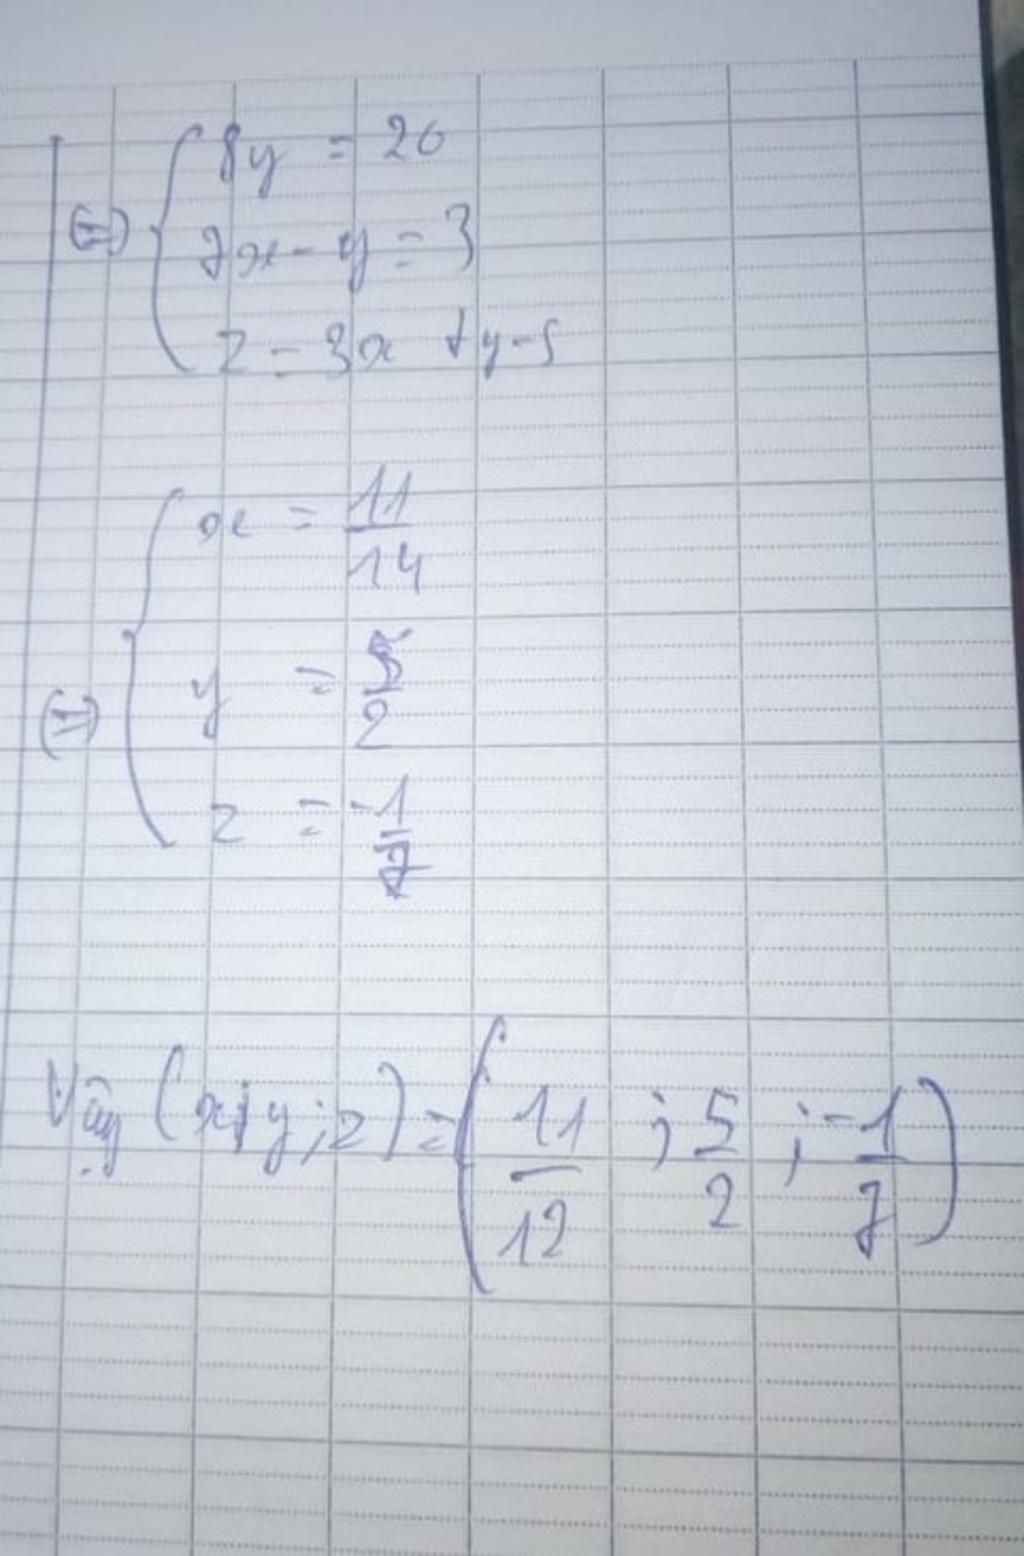 ⇔ { 8y = 20
7x - y = 3
z = 3x + y - 5
⇔ { x = 11/14
y = 5/2
z = -1/7
Vậy (x; y; z) = (11/12 ; 5/2 ; -1/7)